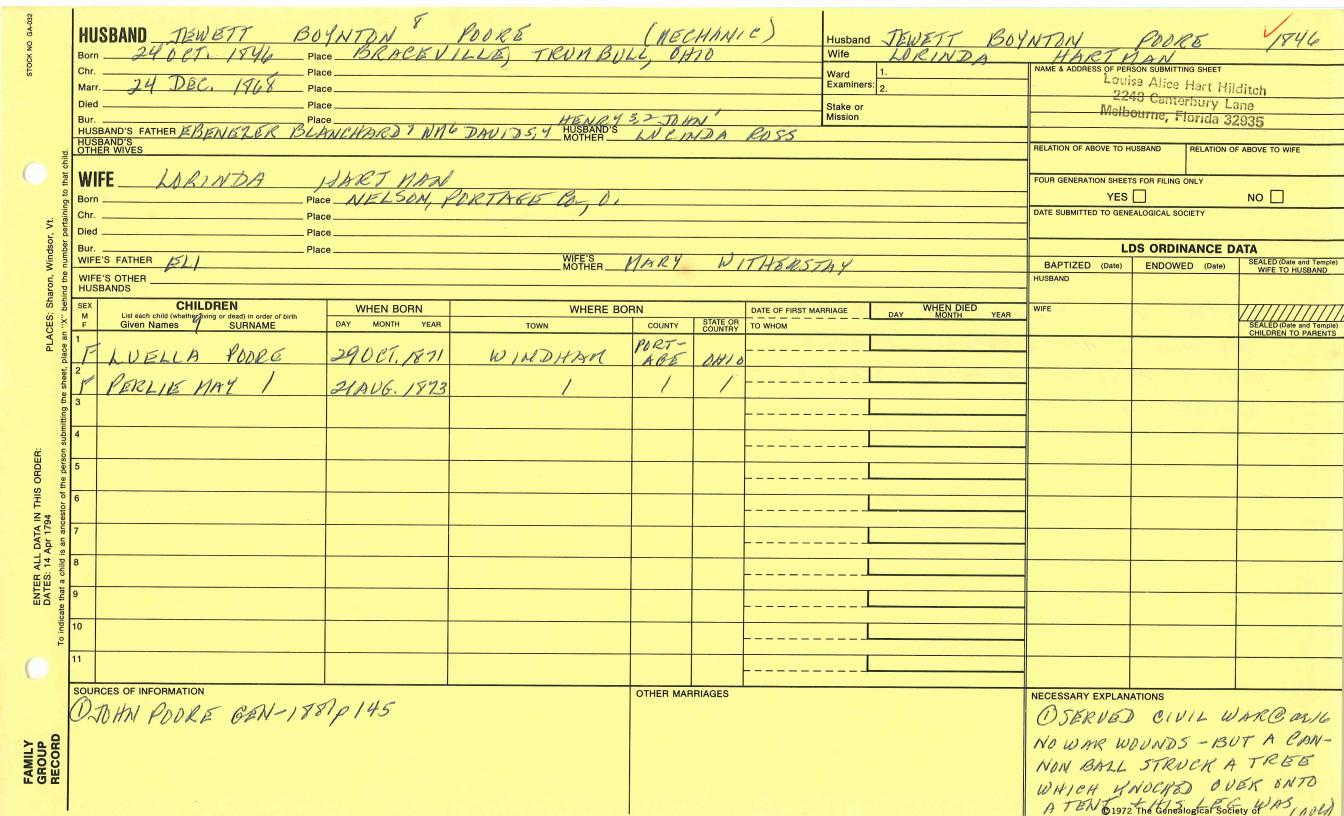 STOCK NO. GA-032
HUSBAND JEWETT BOYNTON 8 POORE (MECHANIC)
Born 24 OCT. 1846 Place BRACEVILLE, TRUMBULL, OHIO
Chr. Place
Marr. 24 DEC. 1868 Place
Died Place
Bur. Place
HENRY 3,2 JOHN 1
HUSBAND'S FATHER EBENEZER BLANCHARD 7 WM 6 DAVID 5,4 HUSBAND'S MOTHER LUCINDA ROSS
HUSBAND'S OTHER WIVES
WIFE LORINDA HARTMAN
Born Place NELSON, PORTAGE Co., O.
Chr. Place
Died Place
Bur. Place
WIFE'S FATHER ELI WIFE'S MOTHER MARY WITHERSTAY
WIFE'S OTHER HUSBANDS
Husband JEWETT BOYNTON POORE 1846
Wife LORINDA HARTMAN
Ward Examiners: 1.
2.
Stake or Mission
NAME & ADDRESS OF PERSON SUBMITTING SHEET
Louise Alice Hart Hilditch
2248 Canterbury Lane
Melbourne, Florida 32935
RELATION OF ABOVE TO HUSBAND RELATION OF ABOVE TO WIFE
FOUR GENERATION SHEETS FOR FILING ONLY
YES NO
DATE SUBMITTED TO GENEALOGICAL SOCIETY
LDS ORDINANCE DATA
BAPTIZED (Date) ENDOWED (Date) SEALED (Date and Temple) WIFE TO HUSBAND
HUSBAND
WIFE
SEALED (Date and Temple) CHILDREN TO PARENTS
SEX M F
CHILDREN
List each child (whether living or dead) in order of birth
Given Names 9 SURNAME
WHEN BORN
DAY MONTH YEAR
WHERE BORN
TOWN COUNTY STATE OR COUNTRY
DATE OF FIRST MARRIAGE
TO WHOM
WHEN DIED
DAY MONTH YEAR
1 F LUELLA POORE 29 OCT. 1871 WINDHAM PORTAGE OHIO
2 F PERLIE MAY 1 21 AUG. 1873 1 1 1
3
4
5
6
7
8
9
10
11
SOURCES OF INFORMATION
① JOHN POORE GEN-1881 p 145
OTHER MARRIAGES
NECESSARY EXPLANATIONS
① SERVED CIVIL WAR @ 16
NO WAR WOUNDS - BUT A CAN-
NON BALL STRUCK A TREE
WHICH KNOCKED OVER ONTO
A TENT + HIS LEG WAS
©1972 The Genealogical Society of
PLACES: Sharon, Windsor, Vt.
ENTER ALL DATA IN THIS ORDER:
DATES: 14 Apr 1794
To indicate that a child is an ancestor of the person submitting the sheet, place an "X" behind the number pertaining to that child.
FAMILY
GROUP
RECORD